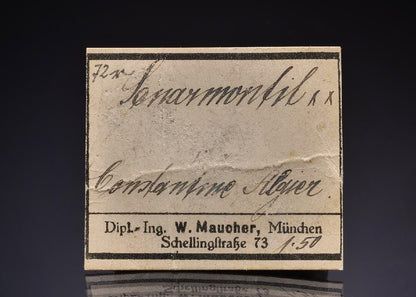 72r
Senarmontit x x
Constantine Algier.
Dipl.-Ing. W. Maucher, München
Schellingstraße 73 1.50